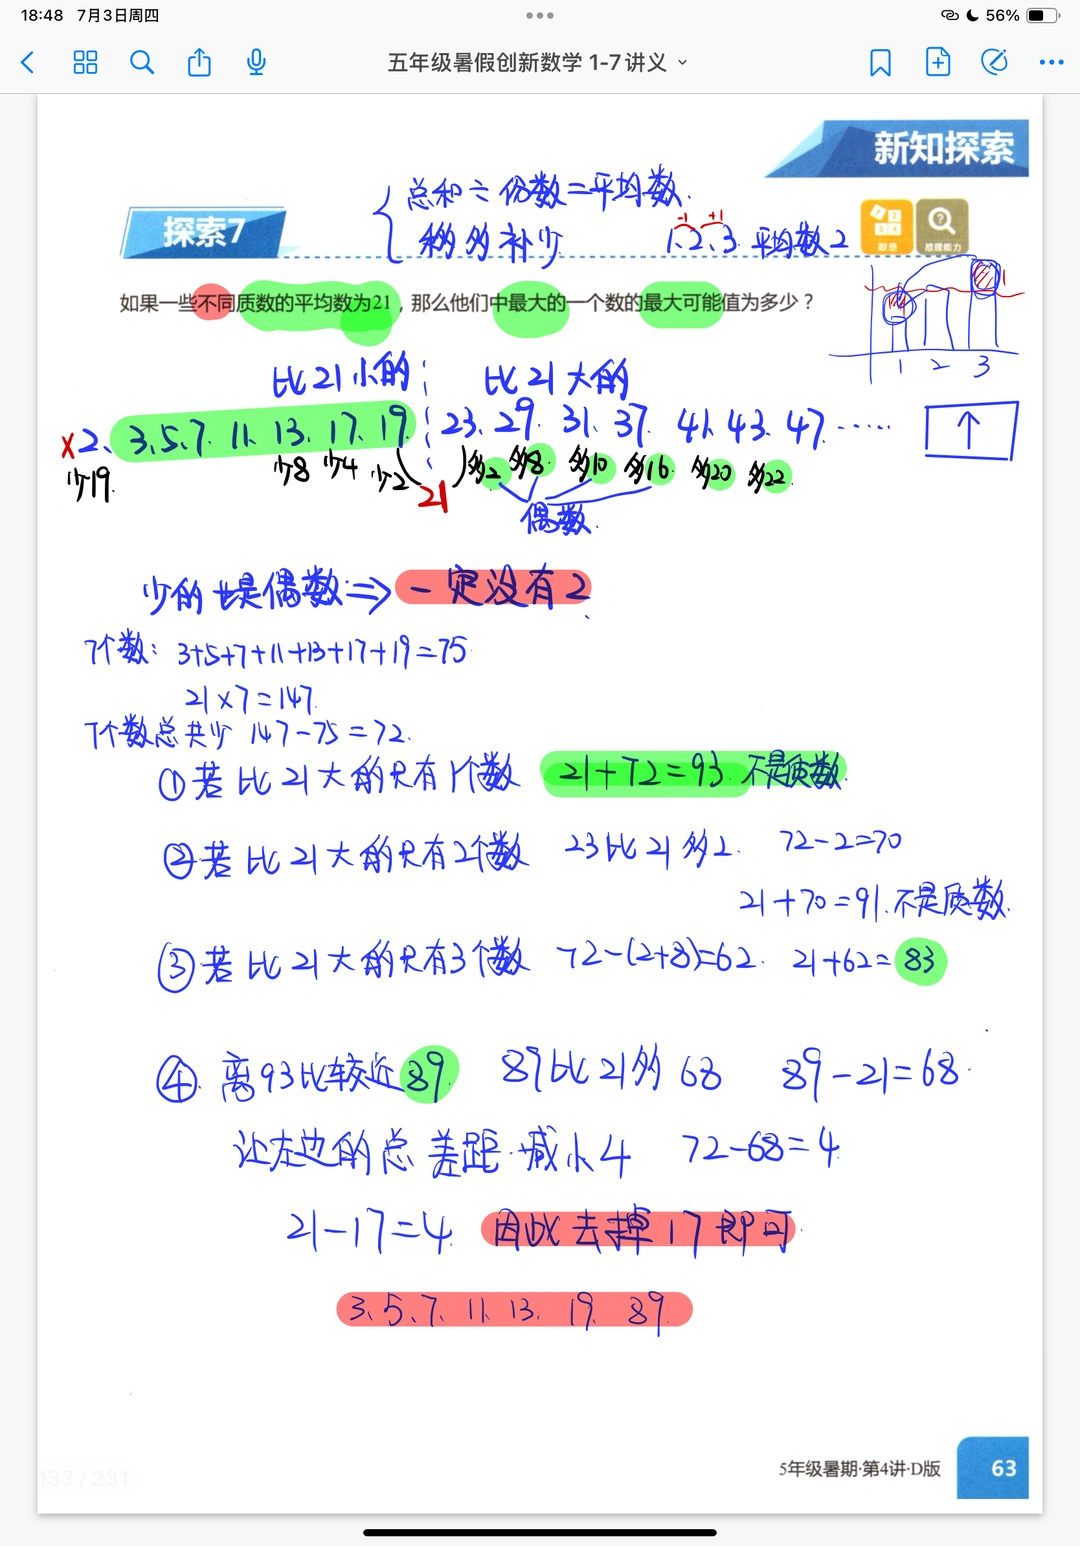 18:48 7月3日周四
56%
五年级暑假创新数学 1-7 讲义
新知探索
总和÷份数=平均数
移多补少
-1 +1
1、2、3. 平均数2
探索7
联想
推理能力
如果一些不同质数的平均数为21，那么他们中最大的一个数的最大可能值为多少？
1
1 2 3
比21小的 比21大的
×2、3、5、7、11、13、17、19 23、29、31、37、41、43、47……
↑
少19. 少8 少4 少2 21 多2 多8 多10 多16 多20 多22
偶数.
少的也是偶数 ⇒ 一定没有2
7个数: 3+5+7+11+13+17+19=75
21×7=147.
7个数总共少 147-75=72.
①若比21大的只有1个数 21+72=93. 不是质数.
②若比21大的只有2个数 23比21多2. 72-2=70
21+70=91. 不是质数.
③若比21大的只有3个数 72-(2+8)=62. 21+62=83
④. 离93比较近89. 89比21多68 89-21=68.
让左边的总差距减小4 72-68=4.
21-17=4. 因此去掉17即可.
3、5、7、11、13、19、89.
133 / 231
5年级暑期·第4讲·D版
63